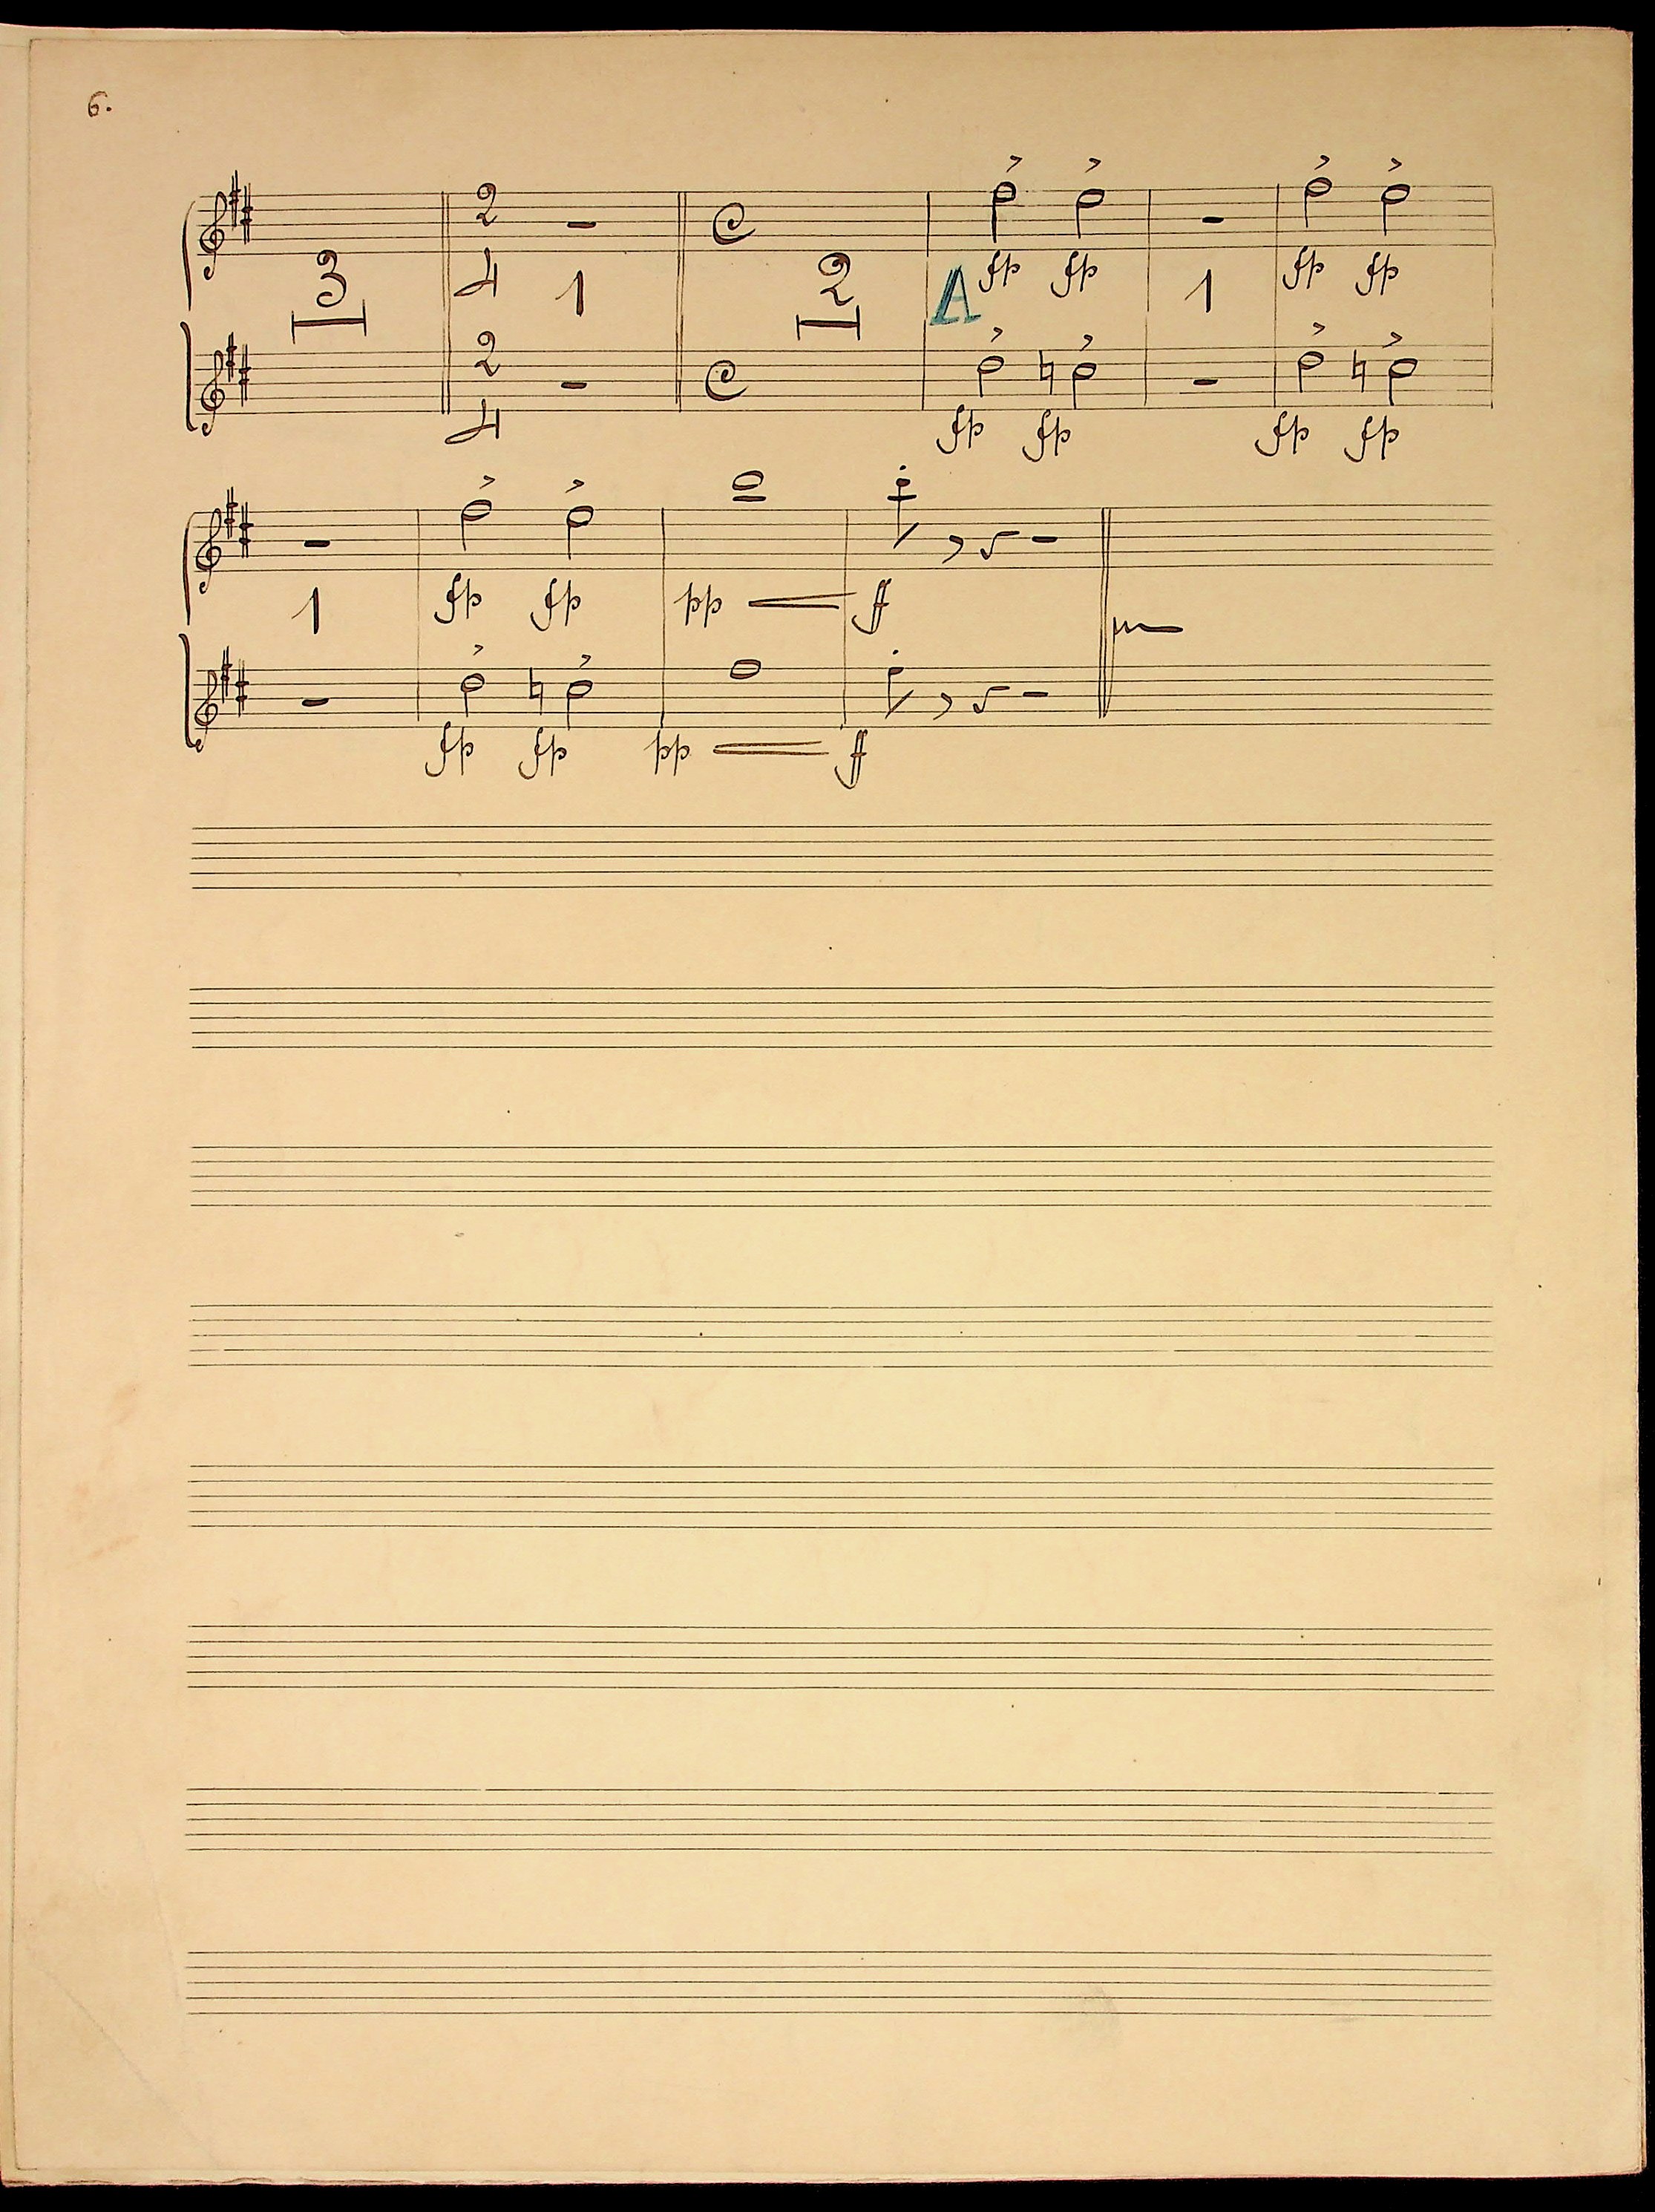 6.
3 2 4 1 C 2 A fp fp 1 fp fp
2 4 C fp fp fp fp
1 fp fp pp ff
fp fp pp ff